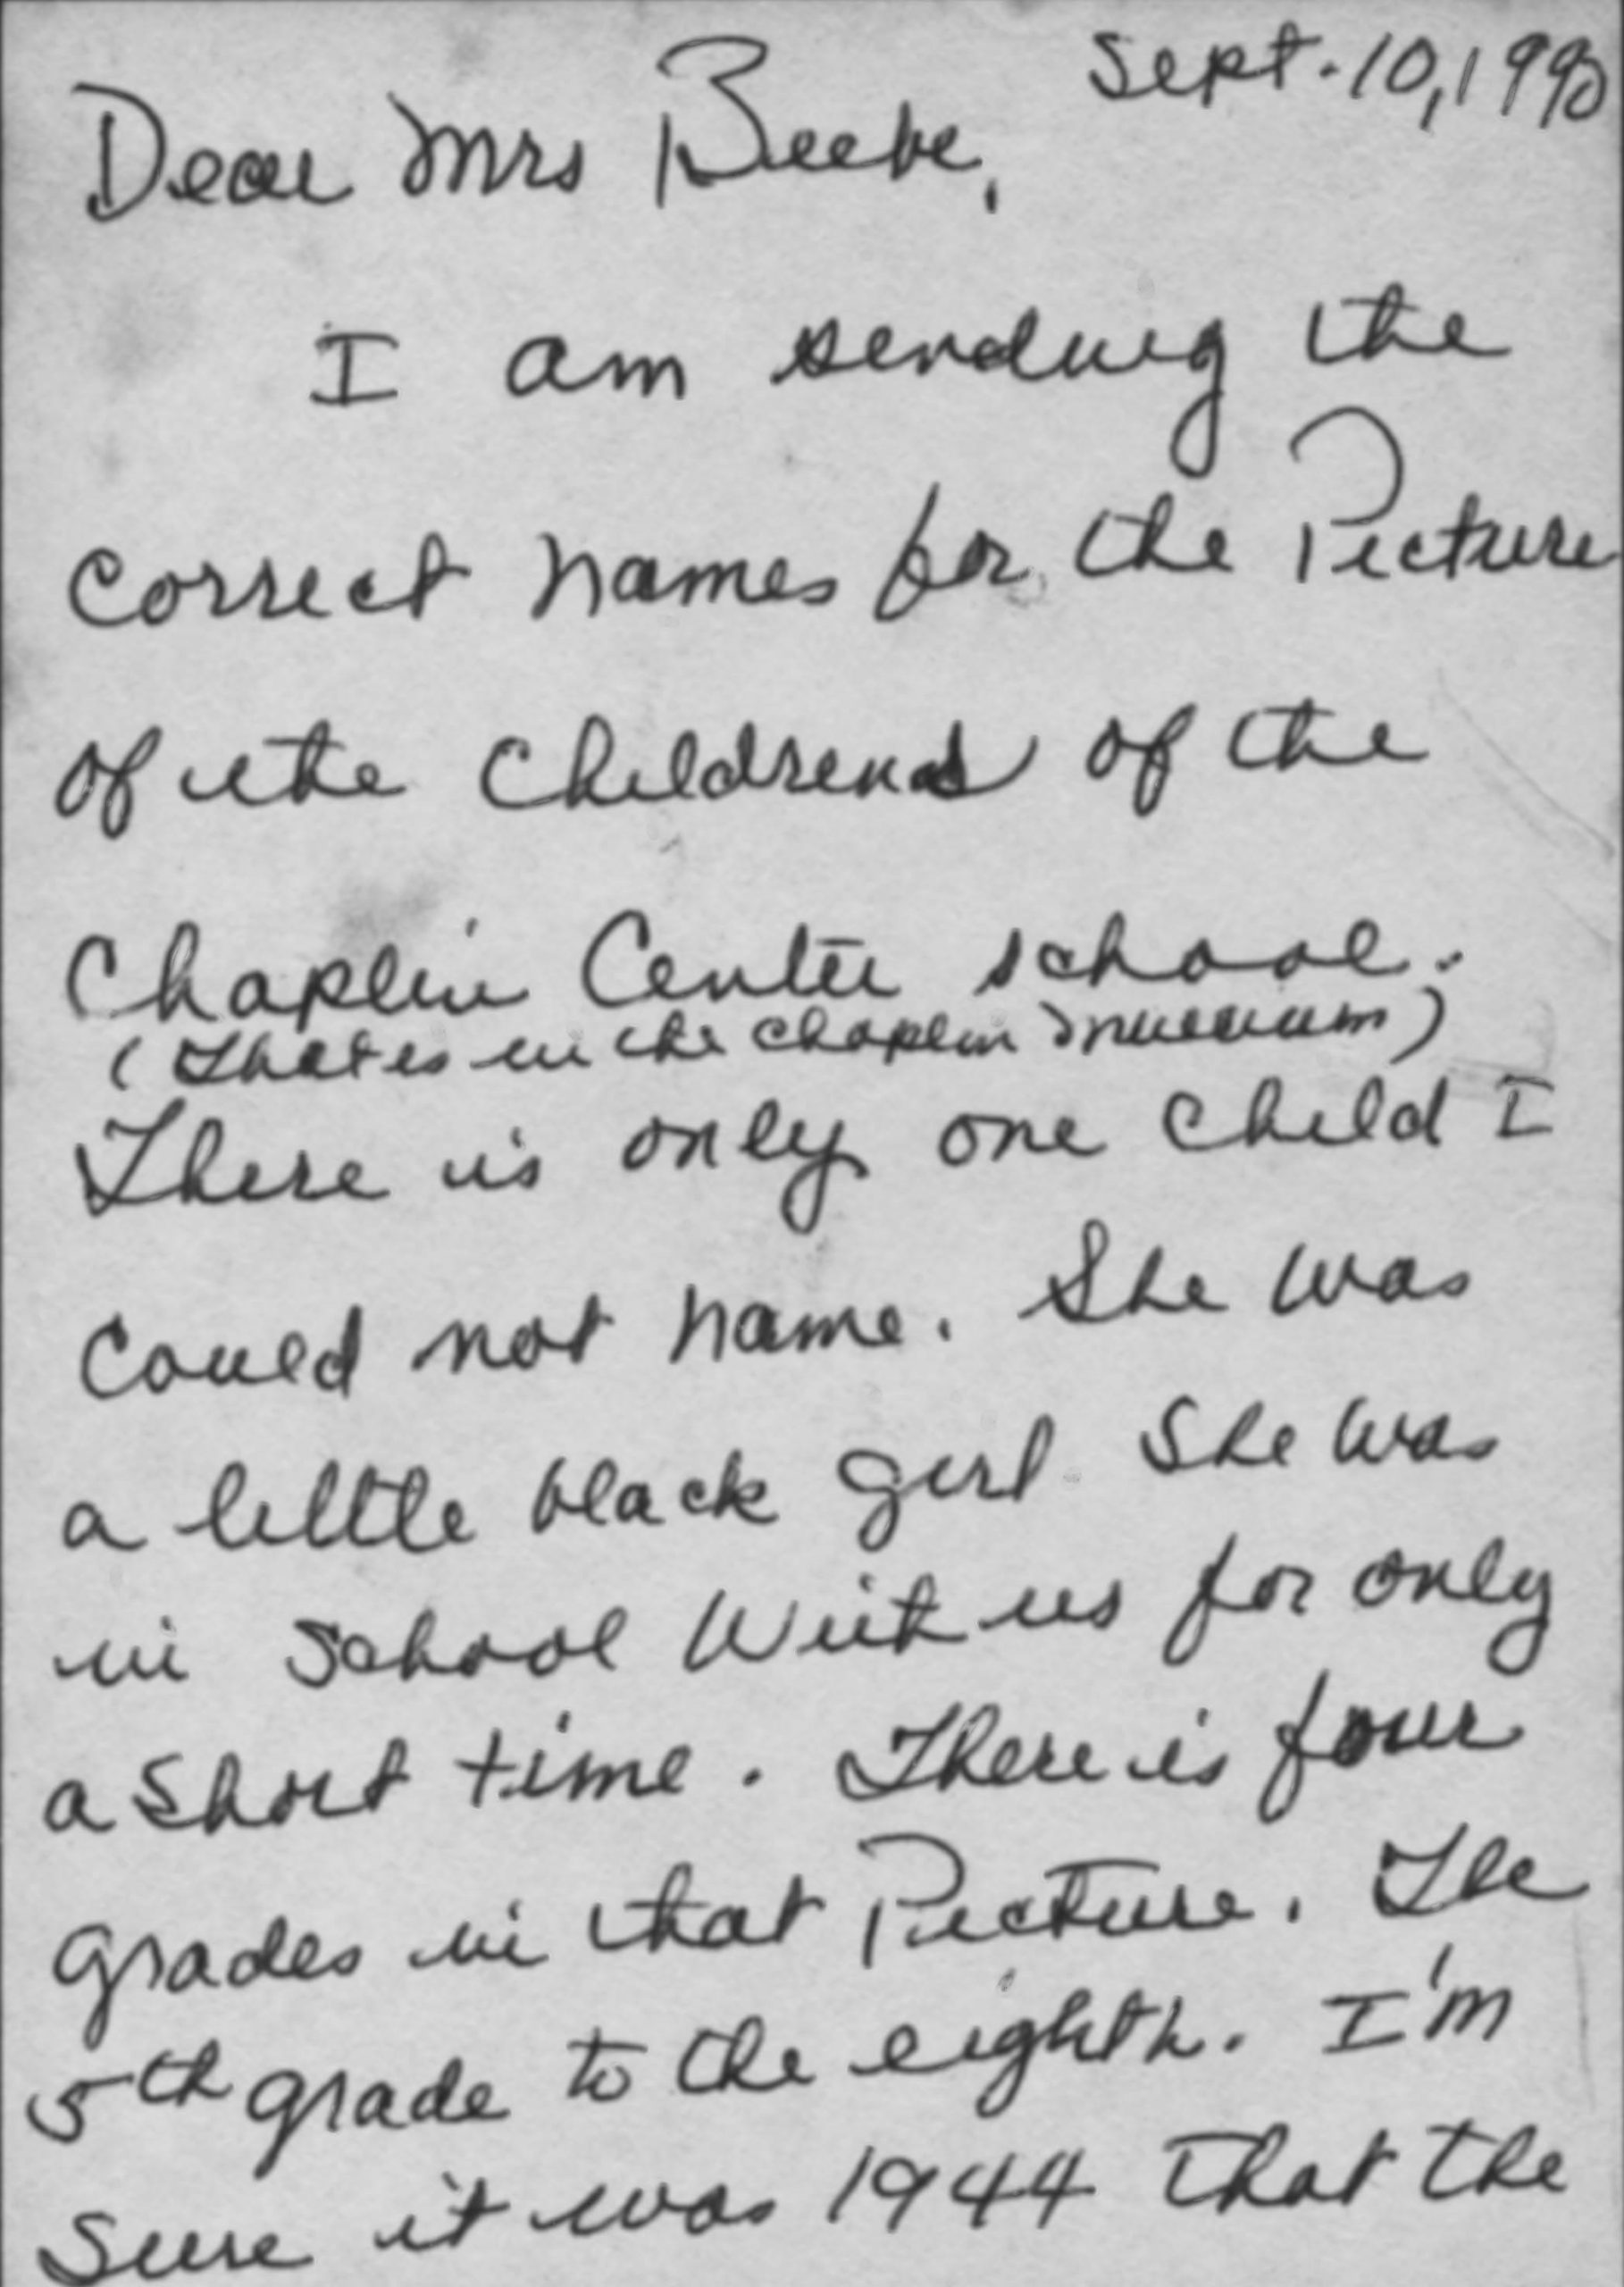 Sept. 10, 1990
Dear Mrs Beebe,
I am sending the
correct names for the Picture
of the Childrens of the
Chaplin Center school.
(That is in the Chaplin Museum)
There is only one child I
could not name. She was
a little black girl She was
in School With us for only
a short time. There is four
grades in that Picture. The
5th grade to the eighth. I'm
Sure it was 1944 that the